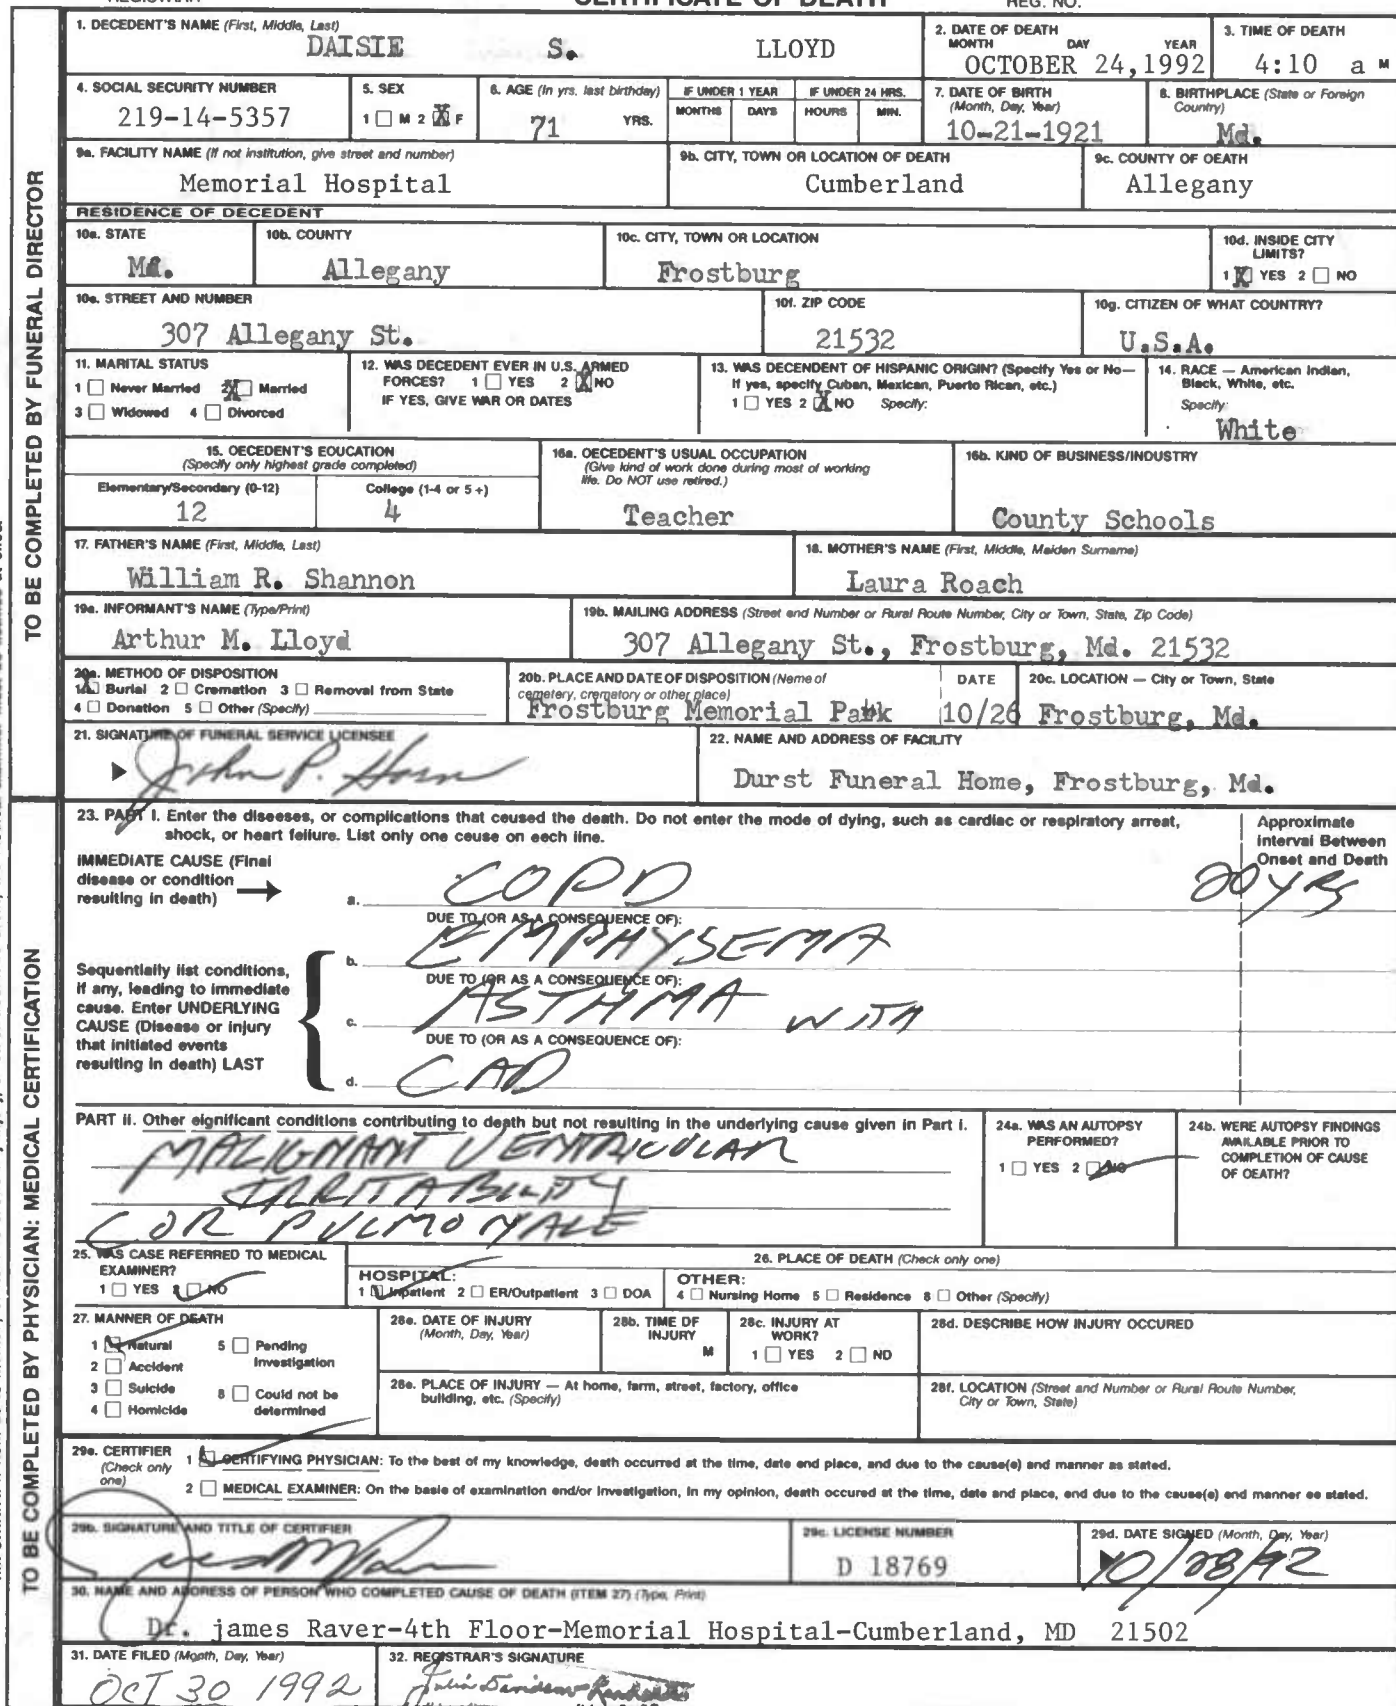 CERTIFICATE OF DEATH
REGISTRAR
REG. NO.
1. DECEDENT'S NAME (First, Middle, Last)
DAISIE S. LLOYD
2. DATE OF DEATH
MONTH DAY YEAR
OCTOBER 24,1992
3. TIME OF DEATH
4:10 a M
4. SOCIAL SECURITY NUMBER
219-14-5357
5. SEX
1 M 2 X F
6. AGE (In yrs. last birthday)
71 YRS.
IF UNDER 1 YEAR
MONTHS DAYS
IF UNDER 24 HRS.
HOURS MIN.
7. DATE OF BIRTH
(Month, Day, Year)
10-21-1921
8. BIRTHPLACE (State or Foreign
Country)
Md.
9a. FACILITY NAME (If not institution, give street and number)
Memorial Hospital
9b. CITY, TOWN OR LOCATION OF DEATH
Cumberland
9c. COUNTY OF DEATH
Allegany
RESIDENCE OF DECEDENT
10a. STATE
Md.
10b. COUNTY
Allegany
10c. CITY, TOWN OR LOCATION
Frostburg
10d. INSIDE CITY
LIMITS?
1 X YES 2 NO
10e. STREET AND NUMBER
307 Allegany St.
10f. ZIP CODE
21532
10g. CITIZEN OF WHAT COUNTRY?
U.S.A.
11. MARITAL STATUS
1 Never Married 2 X Married
3 Widowed 4 Divorced
12. WAS DECEDENT EVER IN U.S. ARMED
FORCES? 1 YES 2 X NO
IF YES, GIVE WAR OR DATES
13. WAS DECENDENT OF HISPANIC ORIGIN? (Specify Yes or No—
If yes, specify Cuban, Mexican, Puerto Rican, etc.)
1 YES 2 X NO Specify:
14. RACE — American Indian,
Black, White, etc.
Specify:
White
15. DECEDENT'S EDUCATION
(Specify only highest grade completed)
Elementary/Secondary (0-12)
12
College (1-4 or 5+)
4
16a. DECEDENT'S USUAL OCCUPATION
(Give kind of work done during most of working
life. Do NOT use retired.)
Teacher
16b. KIND OF BUSINESS/INDUSTRY
County Schools
17. FATHER'S NAME (First, Middle, Last)
William R. Shannon
18. MOTHER'S NAME (First, Middle, Maiden Surname)
Laura Roach
19a. INFORMANT'S NAME (Type/Print)
Arthur M. Lloyd
19b. MAILING ADDRESS (Street and Number or Rural Route Number, City or Town, State, Zip Code)
307 Allegany St., Frostburg, Md. 21532
20a. METHOD OF DISPOSITION
1 X Burial 2 Cremation 3 Removal from State
4 Donation 5 Other (Specify)
20b. PLACE AND DATE OF DISPOSITION (Name of
cemetery, crematory or other place)
Frostburg Memorial Park
DATE
10/26
20c. LOCATION — City or Town, State
Frostburg, Md.
21. SIGNATURE OF FUNERAL SERVICE LICENSEE
John P. Horn
22. NAME AND ADDRESS OF FACILITY
Durst Funeral Home, Frostburg, Md.
TO BE COMPLETED BY FUNERAL DIRECTOR
23. PART I. Enter the diseases, or complications that caused the death. Do not enter the mode of dying, such as cardiac or respiratory arrest,
shock, or heart failure. List only one cause on each line.
Approximate
Interval Between
Onset and Death
IMMEDIATE CAUSE (Final
disease or condition
resulting in death)
a. COPD 20 YRS
DUE TO (OR AS A CONSEQUENCE OF):
b. EMPHYSEMA
Sequentially list conditions,
if any, leading to immediate
cause. Enter UNDERLYING
CAUSE (Disease or injury
that initiated events
resulting in death) LAST
DUE TO (OR AS A CONSEQUENCE OF):
c. ASTHMA WITH
DUE TO (OR AS A CONSEQUENCE OF):
d. CAD
PART II. Other significant conditions contributing to death but not resulting in the underlying cause given in Part I.
MALIGNANT VENTRICULAR
IRRITABILITY
COR PULMONALE
24a. WAS AN AUTOPSY
PERFORMED?
1 YES 2 NO
24b. WERE AUTOPSY FINDINGS
AVAILABLE PRIOR TO
COMPLETION OF CAUSE
OF DEATH?
25. WAS CASE REFERRED TO MEDICAL
EXAMINER?
1 YES 2 NO
26. PLACE OF DEATH (Check only one)
HOSPITAL:
1 Inpatient 2 ER/Outpatient 3 DOA
OTHER:
4 Nursing Home 5 Residence 6 Other (Specify)
27. MANNER OF DEATH
1 Natural 5 Pending
Investigation
2 Accident
3 Suicide 6 Could not be
determined
4 Homicide
28a. DATE OF INJURY
(Month, Day, Year)
28b. TIME OF
INJURY
M
28c. INJURY AT
WORK?
1 YES 2 NO
28d. DESCRIBE HOW INJURY OCCURED
28e. PLACE OF INJURY — At home, farm, street, factory, office
building, etc. (Specify)
28f. LOCATION (Street and Number or Rural Route Number,
City or Town, State)
29a. CERTIFIER
(Check only
one)
1 CERTIFYING PHYSICIAN: To the best of my knowledge, death occurred at the time, date and place, and due to the cause(s) and manner as stated.
2 MEDICAL EXAMINER: On the basis of examination and/or investigation, in my opinion, death occured at the time, date and place, and due to the cause(s) and manner as stated.
29b. SIGNATURE AND TITLE OF CERTIFIER
29c. LICENSE NUMBER
D 18769
29d. DATE SIGNED (Month, Day, Year)
10/28/92
30. NAME AND ADDRESS OF PERSON WHO COMPLETED CAUSE OF DEATH (ITEM 27) (Type, Print)
Dr. james Raver-4th Floor-Memorial Hospital-Cumberland, MD 21502
31. DATE FILED (Month, Day, Year)
OCT 30 1992
32. REGISTRAR'S SIGNATURE
TO BE COMPLETED BY PHYSICIAN: MEDICAL CERTIFICATION